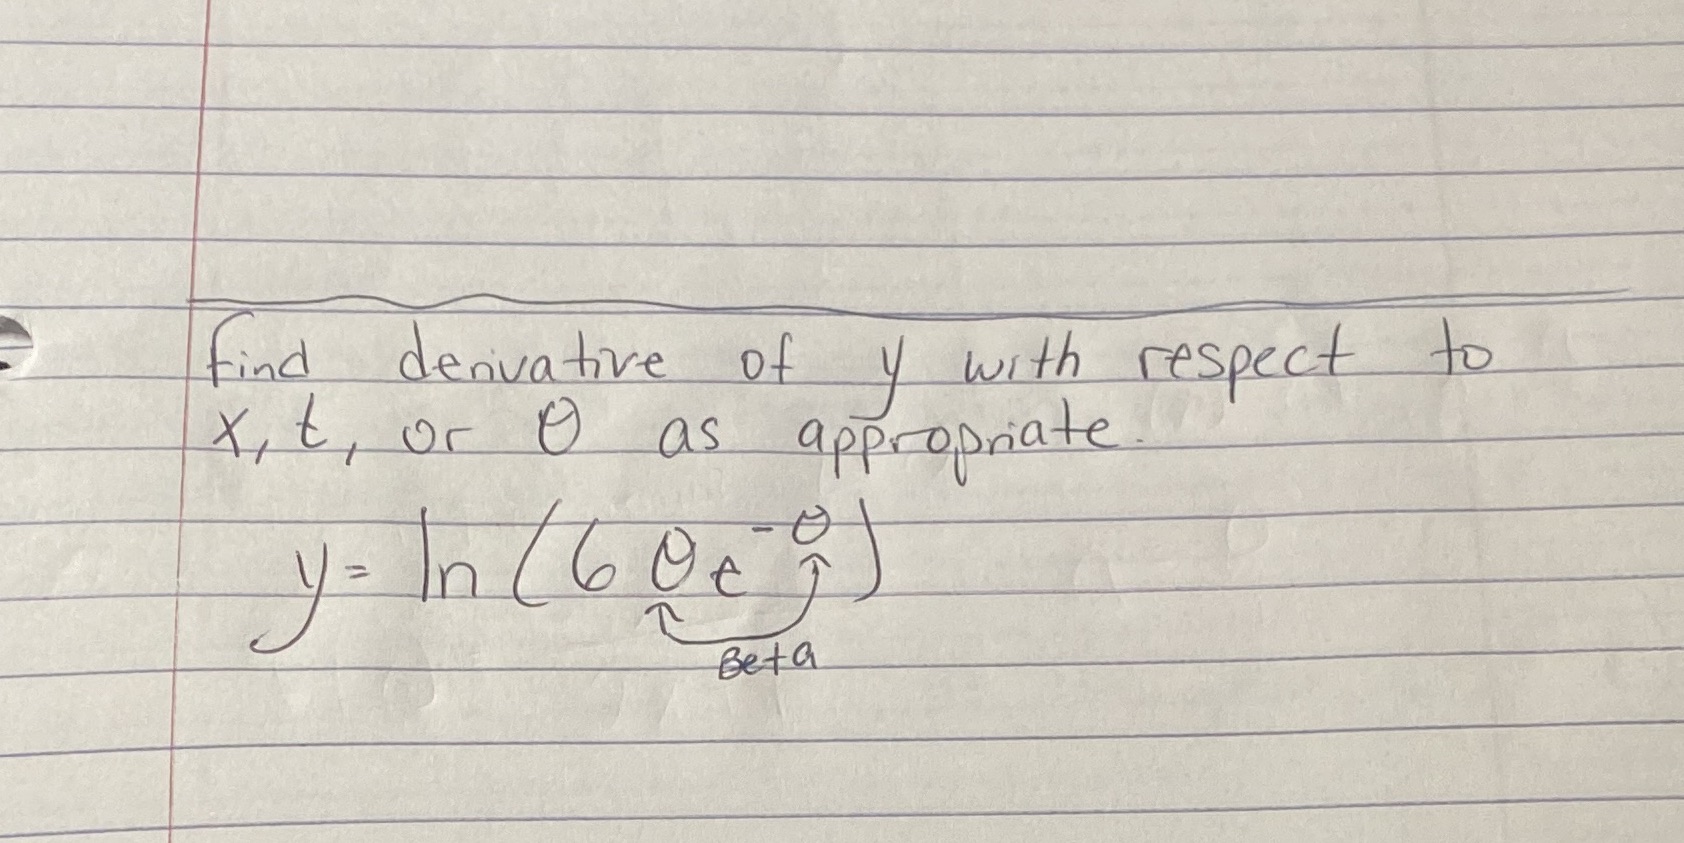 find derivative of y with respect to
x, t, or θ as appropriate.
y = ln(6θe^-θ)
Beta